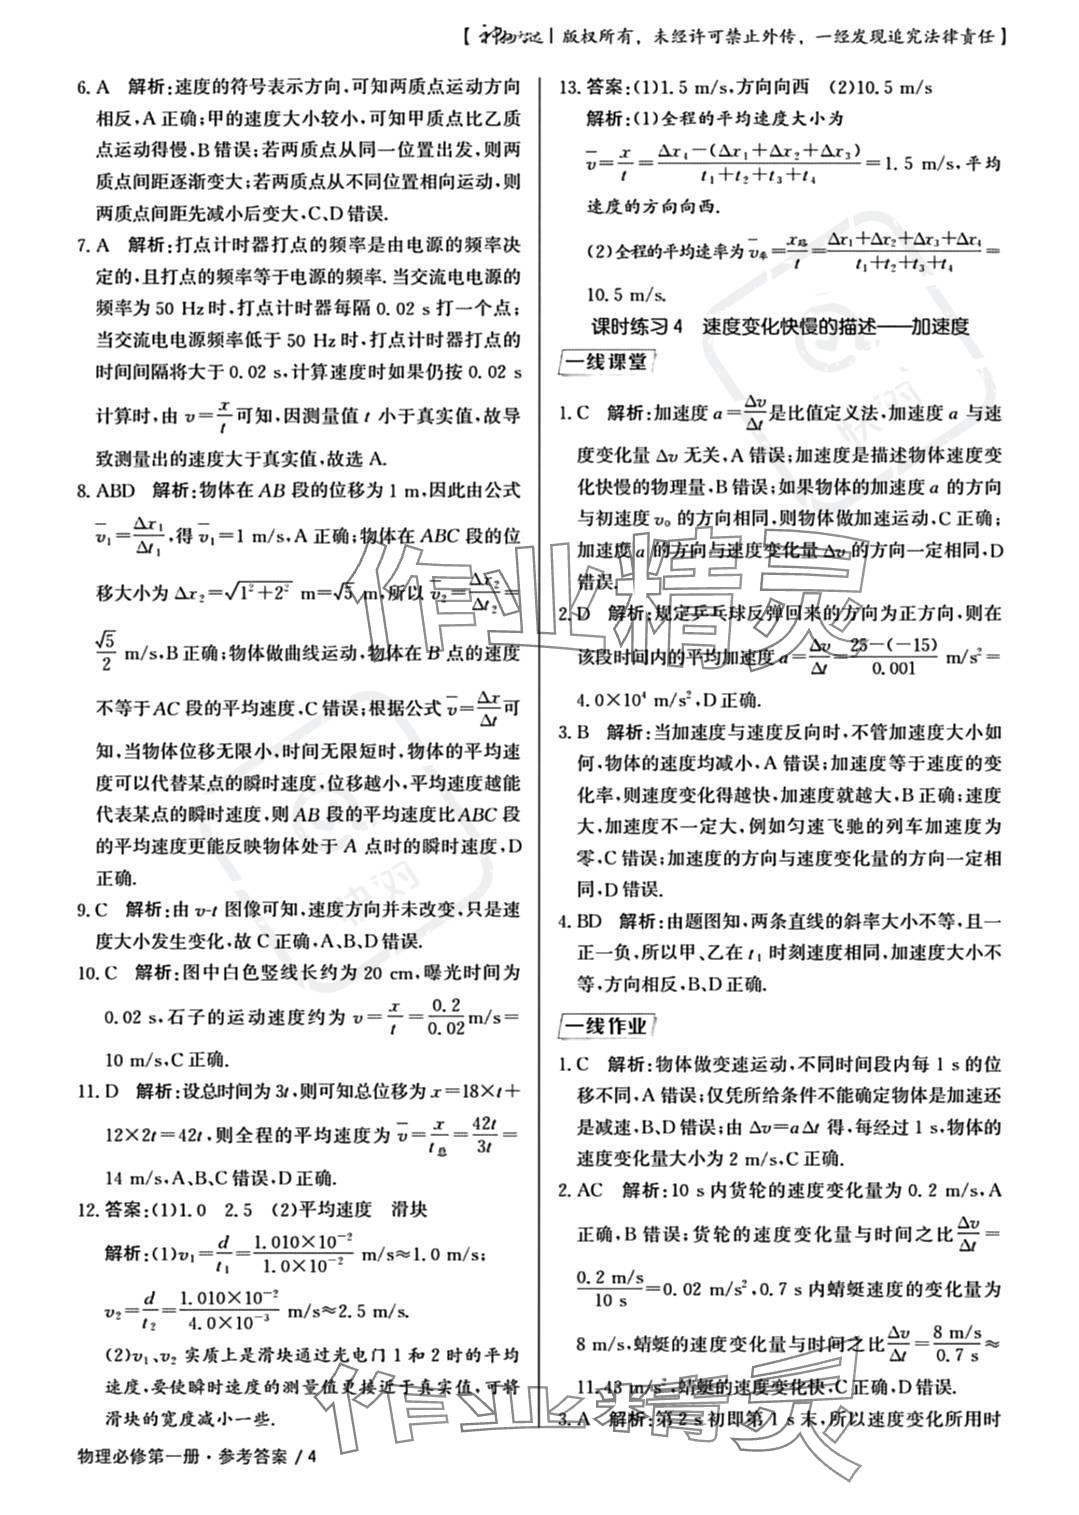 版权所有，未经许可禁止外传，一经发现追究法律责任】
6. A 解析:速度的符号表示方向,可知两质点运动方向
相反,A 正确;甲的速度大小较小,可知甲质点比乙质
点运动得慢,B 错误;若两质点从同一位置出发,则两
质点间距逐渐变大;若两质点从不同位置相向运动,则
两质点间距先减小后变大,C、D 错误.
7. A 解析:打点计时器打点的频率是由电源的频率决
定的,且打点的频率等于电源的频率.当交流电电源的
频率为 50 Hz 时,打点计时器每隔 0.02 s 打一个点;
当交流电电源频率低于 50 Hz 时,打点计时器打点的
时间间隔将大于 0.02 s,计算速度时如果仍按 0.02 s
计算时,由 v=x/t可知,因测量值 t 小于真实值,故导
致测量出的速度大于真实值,故选 A.
8. ABD 解析:物体在 AB 段的位移为 1 m,因此由公式
v̄₁=Δx₁/Δt₁,得 v̄₁=1 m/s,A 正确;物体在 ABC 段的位
移大小为 Δx₂=√(1²+2²) m=√5 m,所以 v̄₂=Δx₂/Δt₂=
√5/2 m/s,B 正确;物体做曲线运动,物体在 B 点的速度
不等于 AC 段的平均速度,C 错误;根据公式 v̄=Δx/Δt可
知,当物体位移无限小,时间无限短时,物体的平均速
度可以代替某点的瞬时速度,位移越小,平均速度越能
代表某点的瞬时速度,则 AB 段的平均速度比 ABC 段
的平均速度更能反映物体处于 A 点时的瞬时速度,D
正确.
9. C 解析:由 v-t 图像可知,速度方向并未改变,只是速
度大小发生变化,故 C 正确,A、B、D 错误.
10. C 解析:图中白色竖线长约为 20 cm,曝光时间为
0.02 s,石子的运动速度约为 v=x/t=0.2/0.02 m/s=
10 m/s,C 正确.
11. D 解析:设总时间为 3t,则可知总位移为 x=18×t+
12×2t=42t,则全程的平均速度为 v̄=x/t总=42t/3t=
14 m/s,A、B、C 错误,D 正确.
12. 答案:(1)1.0 2.5 (2)平均速度 滑块
解析:(1)v₁=d/t₁=1.010×10⁻²/1.0×10⁻² m/s≈1.0 m/s;
v₂=d/t₂=1.010×10⁻²/4.0×10⁻³ m/s≈2.5 m/s.
(2)v₁、v₂ 实质上是滑块通过光电门 1 和 2 时的平均
速度,要使瞬时速度的测量值更接近于真实值,可将
滑块的宽度减小一些.
物理必修第一册·参考答案 / 4
13. 答案:(1)1.5 m/s,方向向西 (2)10.5 m/s
解析:(1)全程的平均速度大小为
v̄=x/t=Δx₄-(Δx₁+Δx₂+Δx₃)/t₁+t₂+t₃+t₄=1.5 m/s,平均
速度的方向向西.
(2)全程的平均速率为 v̄率=x总/t=Δx₁+Δx₂+Δx₃+Δx₄/t₁+t₂+t₃+t₄=
10.5 m/s.
课时练习 4 速度变化快慢的描述——加速度
一线课堂
1. C 解析:加速度 a=Δv/Δt是比值定义法,加速度 a 与速
度变化量 Δv 无关,A 错误;加速度是描述物体速度变
化快慢的物理量,B 错误;如果物体的加速度 a 的方向
与初速度 v₀ 的方向相同,则物体做加速运动,C 正确;
加速度 a 的方向与速度变化量 Δv 的方向一定相同,D
错误.
2. D 解析:规定乒乓球反弹回来的方向为正方向,则在
该段时间内的平均加速度 a=Δv/Δt=25-(-15)/0.001 m/s²=
4.0×10⁴ m/s²,D 正确.
3. B 解析:当加速度与速度反向时,不管加速度大小如
何,物体的速度均减小,A 错误;加速度等于速度的变
化率,则速度变化得越快,加速度就越大,B 正确;速度
大,加速度不一定大,例如匀速飞驰的列车加速度为
零,C 错误;加速度的方向与速度变化量的方向一定相
同,D 错误.
4. BD 解析:由题图知,两条直线的斜率大小不等,且一
正一负,所以甲、乙在 t₁ 时刻速度相同,加速度大小不
等,方向相反,B、D 正确.
一线作业
1. C 解析:物体做变速运动,不同时间段内每 1 s 的位
移不同,A 错误;仅凭所给条件不能确定物体是加速还
是减速,B、D 错误;由 Δv=aΔt 得,每经过 1 s,物体的
速度变化量大小为 2 m/s,C 正确.
2. AC 解析:10 s 内货轮的速度变化量为 0.2 m/s,A
正确,B 错误;货轮的速度变化量与时间之比Δv/Δt=
0.2 m/s/10 s=0.02 m/s²,0.7 s 内蜻蜓速度的变化量为
8 m/s,蜻蜓的速度变化量与时间之比Δv/Δt=8 m/s/0.7 s≈
11.43 m/s²,蜻蜓的速度变化快,C 正确,D 错误.
3. A 解析:第 2 s 初即第 1 s 末,所以速度变化所用时
作业精灵
作业精灵
快对
快对